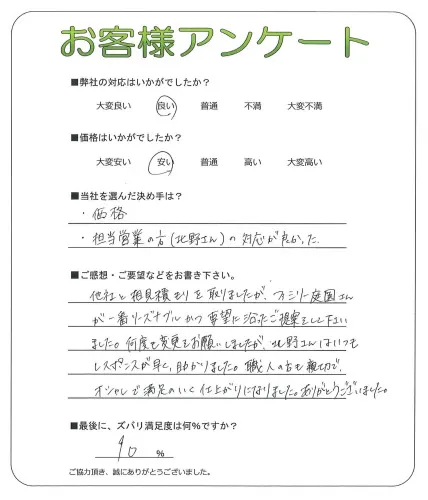 お客様アンケート
■弊社の対応はいかがでしたか？
大変良い 良い 普通 不満 大変不満
■価格はいかがでしたか？
大変安い 安い 普通 高い 大変高い
■当社を選んだ決め手は？
・価格
・担当営業の方(北野さん)の対応が良かった.
■ご感想・ご要望などをお書き下さい。
他社と相見積もりを取りましたが、ファミリー庭園さん
が一番リーズナブルかつ要望に沿ったご提案をして下さい
ました。何度も変更をお願いしましたが、北野さんはいつも
レスポンスが早く、助かりました。職人の方も親切で、
オシャレで満足のいく仕上がりになりました。ありがとうございました。
■最後に、ズバリ満足度は何％ですか？
90 %
ご協力頂き、誠にありがとうございました。